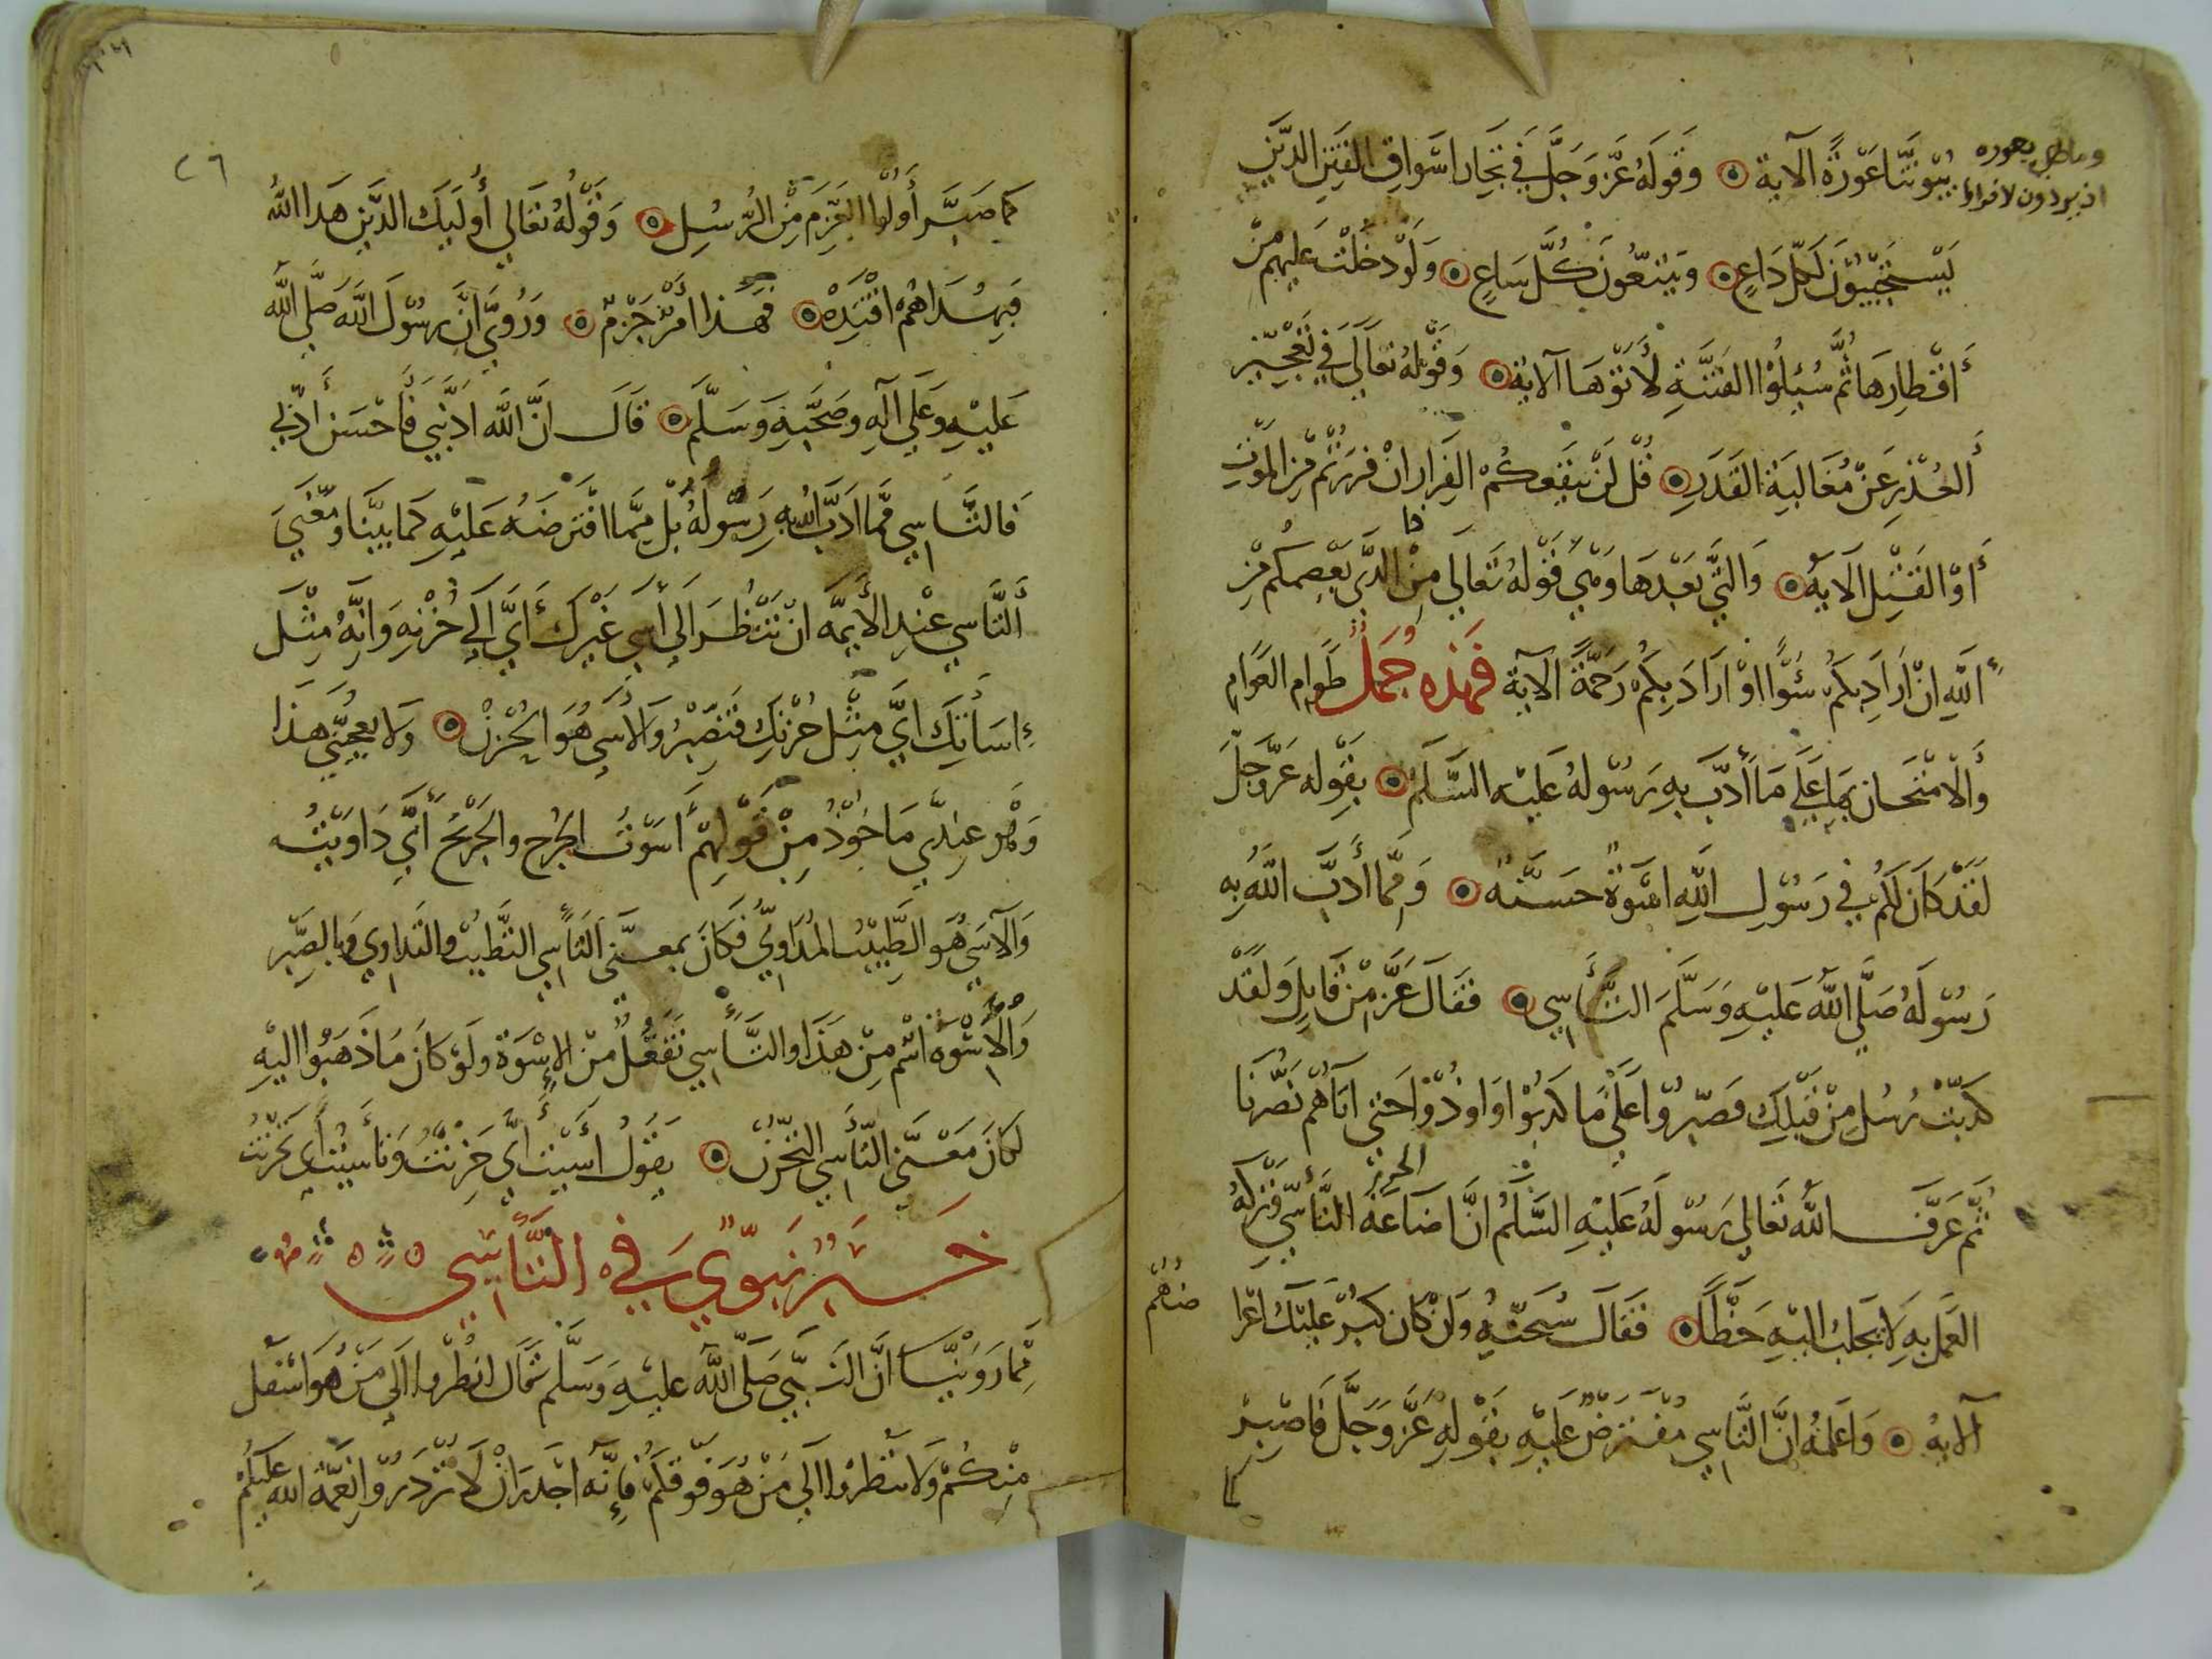 بيوتنا عورة الآية ۞ وقوله عز وجل في تجار اسواق الفتن الذين
وما هي بعوره
ان يريدون لا فرارا
يستجيبون لكل داع ۞ ويتبعون كل ساع ۞ ولو دخلت عليهم من
أقطارها ثم سئلوا الفتنة لأتوها الآية ۞ وقوله تعالى في تعجيز
ألعذر عن مغالبة القدر ۞ قل لن ينفعكم الفرار ان فررتم من الموت
أو القتل الاية ۞ والتي بعدها وهي قوله تعالى من الذي يعصمكم من
الله ان اراد بكم سوًا او اراد بكم رحمة الآية فهذه جمل طوام العوام
والامتحان بها على ما أدب به رسوله عليه السلم ۞ بقوله عز وجل
لقد كان لكم في رسول الله اسوة حسنه ۞ ومما أدب الله به
رسوله صلى الله عليه وسلم التأسي ۞ فقال عز من قايل ولقد
كذبت رسل من قبلك فصبروا على ما كذبوا واوذوا حتى اتاهم نصرنا
ثم عرف الله تعالى رسوله عليه السلم ان اضاعة التأسي وترك
العمل به لا يجلب اليه حظًا ۞ فقال سبحنه وان كان كبر عليك اعرا
ضهم
آلايه ۞ واعلمه ان التاسي مفترض عليه بقوله عز وجل فاصبر
كما
٢٦
كما صبر أولوا العزم من الرسل ۞ وقوله تعالى أوليك الذين هدا الله
فبهداهم اقتده ۞ فهذا أمر جزم ۞ وروي ان رسول الله صلى الله
عليه وعلى آله وصحبه وسلم ۞ قال ان الله ادبني فأحسن أدبي
فالتاسي مما ادب الله به رسوله بل مما افترضه عليه كما بينا ومعنى
ألتاسي عند الأيمة ان تنظر الى أسى غيرك أي الى حزنه وانه مثل
إساتك اي مثل حزنك فتصبر والاسى هو الحزن ۞ ولا يعجبني هذا
وهو عندي ماخوذ من قولهم أسوت الجرح والجريح أي داويته
والآسي هو الطبيب المداوي فكان بمعنى التأسي التطبب والتداوي بالصبر
والأسوة اسم من هذا والتأسي تفعل من الإسوة ولو كان ما ذهبوا اليه
لكان معنى التأسي التحزن ۞ يقول أسيت أي حزنت وتأسيت اي تحزنت
خبر نبوي في التأسي
مما روينا ان النبي صلى الله عليه وسلم قال انظروا الى من هو اسفل
منكم ولا تنظروا الى من هو فوقكم فإنه اجدر ان لا تزدروا نعمة الله عليكم